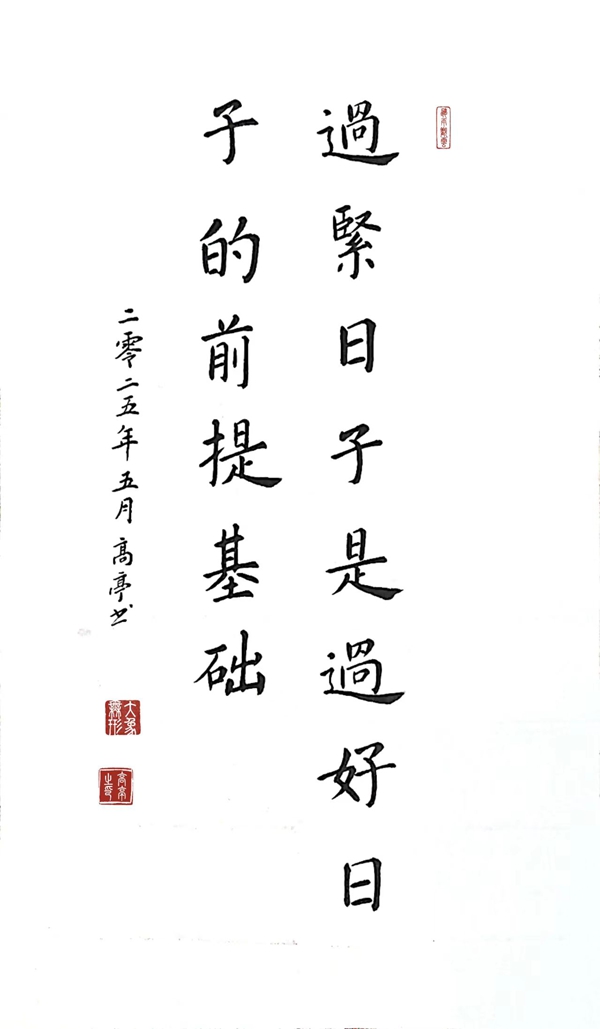 過緊日子是過好日
子的前提基础
二零二五年五月高亭书
大象無形
高亭之印